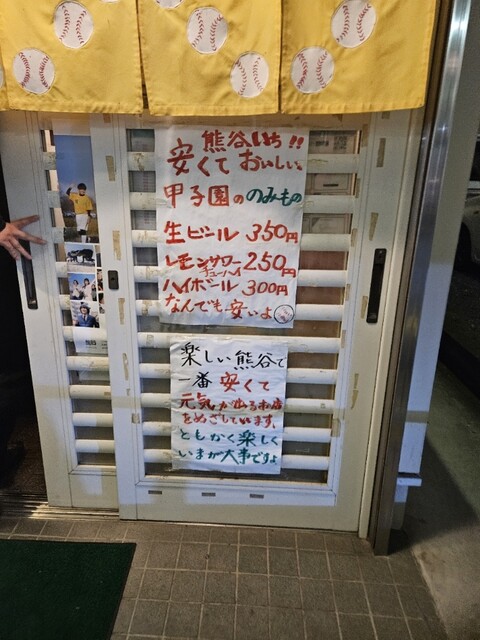 熊谷いち!!
安くておいしい
甲子園ののみもの
生ビール 350円
レモンサワー 250円
チューハイ
ハイボール 300円
なんでも安いよ
楽しい熊谷で
一番安くて
元気が出るお店
をめざしています。
ともかく楽しく
いまが大事ですよ